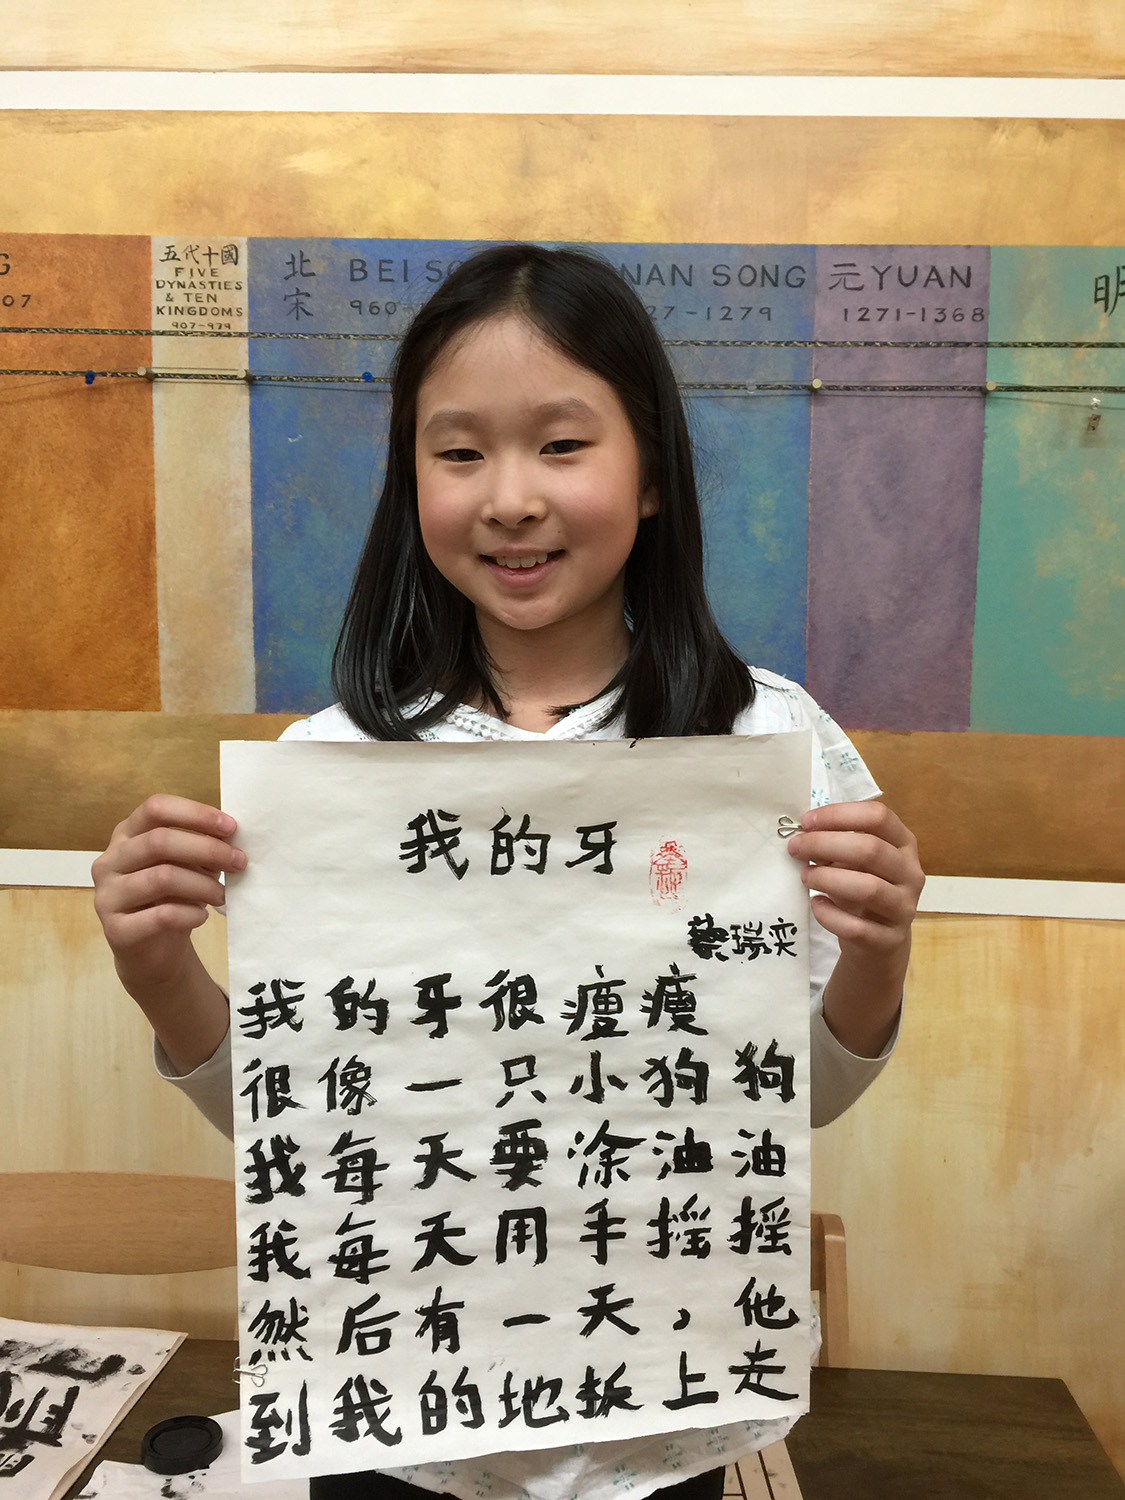 G
07
五代十國
FIVE
DYNASTIES
& TEN
KINGDOMS
907-979
北宋
BEI SO
960-
NAN SONG
27-1279
元 YUAN
1271-1368
明
我的牙
蔡瑞奕
我的牙很瘦瘦
很像一只小狗狗
我每天要涂油油
我每天用手摇摇
然后有一天，他走
到我的地板上